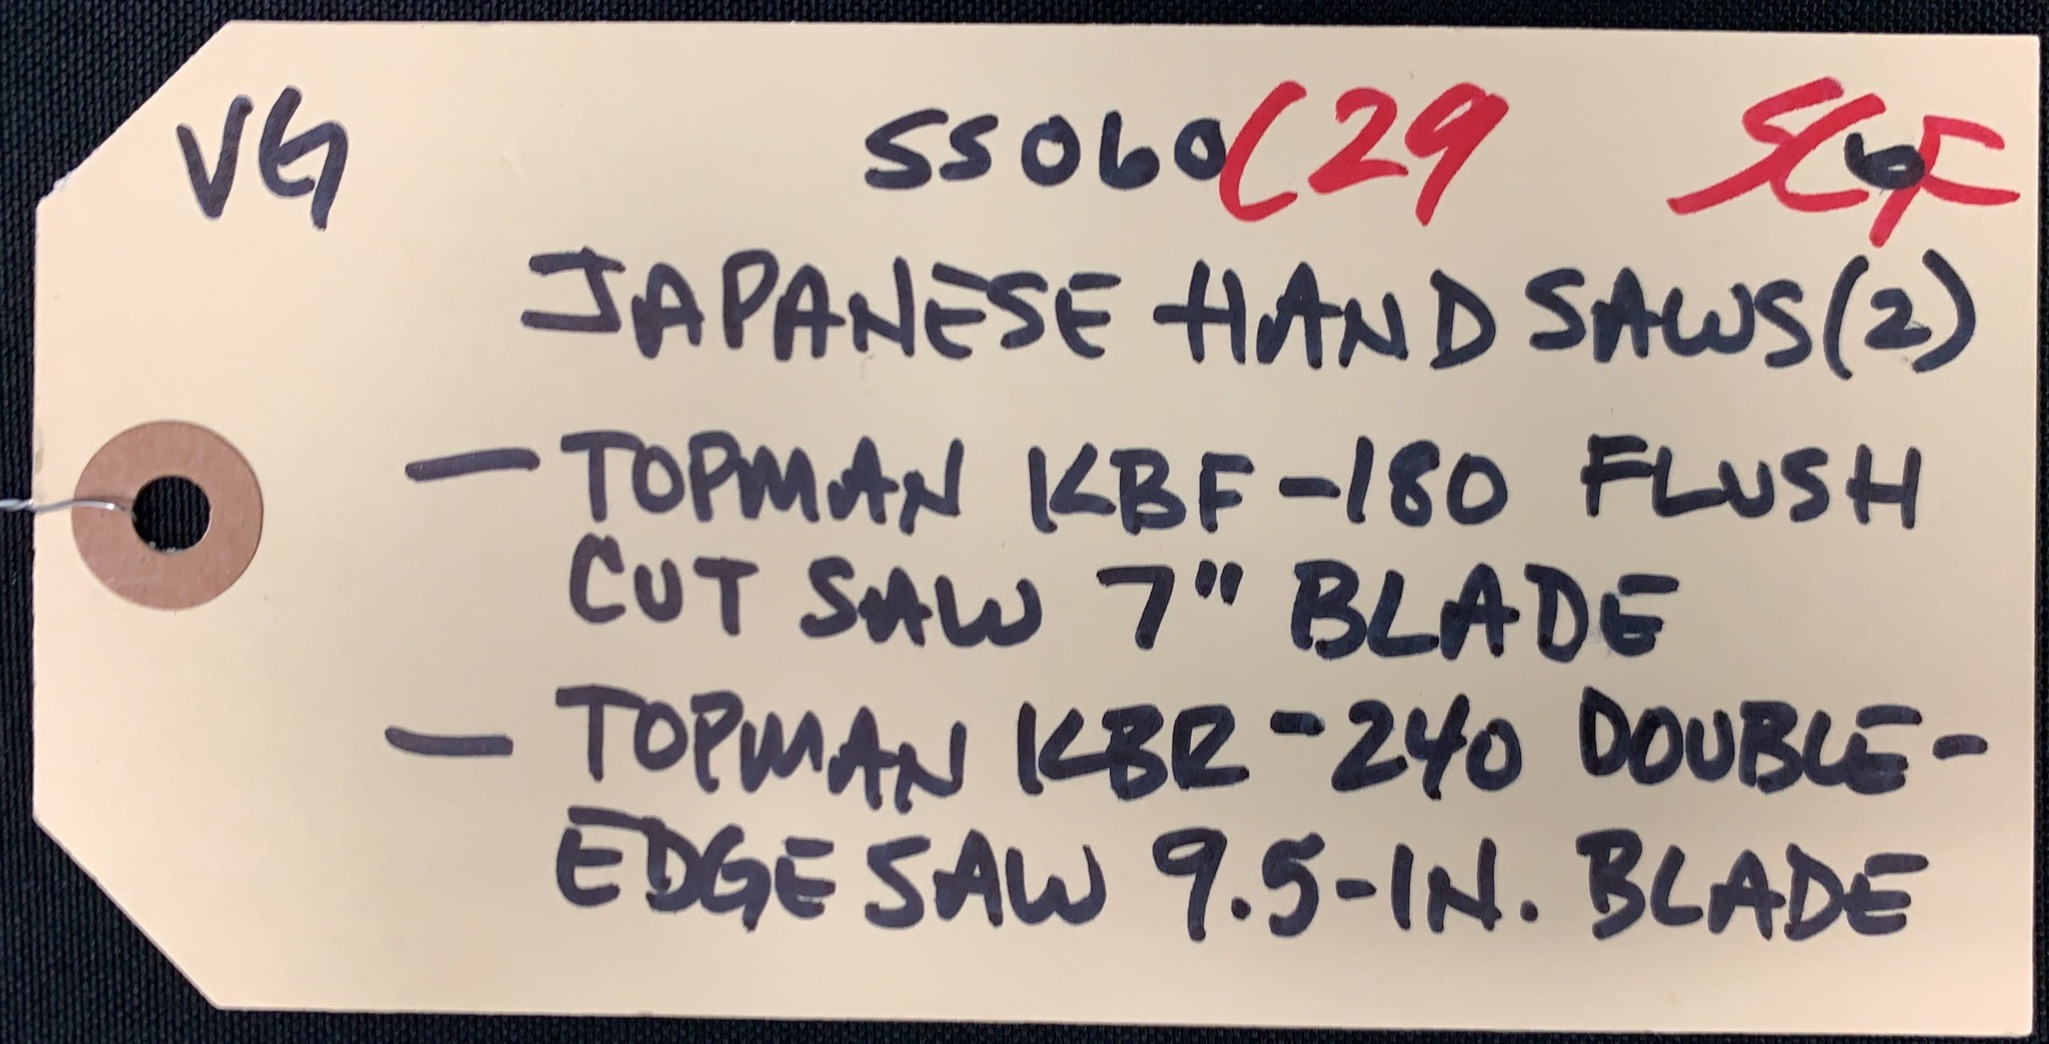 VG SS060 C29
JAPANESE HAND SAWS (2)
— TOPMAN KBF-180 FLUSH
CUT SAW 7" BLADE
— TOPMAN KBR-240 DOUBLE-
EDGE SAW 9.5-IN. BLADE